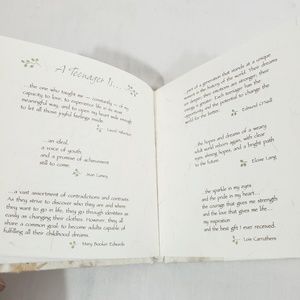 A Teenager Is...
...the one who taught me — constantly — of my
capacity to love, to experience life in its most
meaningful way, and to open my heart wide enough
to let all those joyful feelings inside.
...an ideal,
a voice of youth
and a promise of achievement
still to come.
...a vast assortment of contradictions and contrasts.
As they strive to discover who they are and where
they want to go in life, they go through identities as
easily as changing their clothes. However, they all
share a common goal: to become adults capable of
fulfilling all their childhood dreams.
Mary Booker Edwards
...part of a generation that stands at a unique
moment in the history of the world. Their dreams
are their emotions are stronger; their
energy is greater. Each teenager has the
opportunity and the potential to change the
world for the better.
Edward O'Neill
...the hopes and dreams of a weary
adult world reborn again, with clear
eyes, shining hopes, and a bright path
to the future.
Eloise Long
...the sparkle in my eyes
and the pride in my heart...
the courage that gives me strength
and the love that gives me life...
my inspiration
and the best gift I ever received.
Lois Carruthers